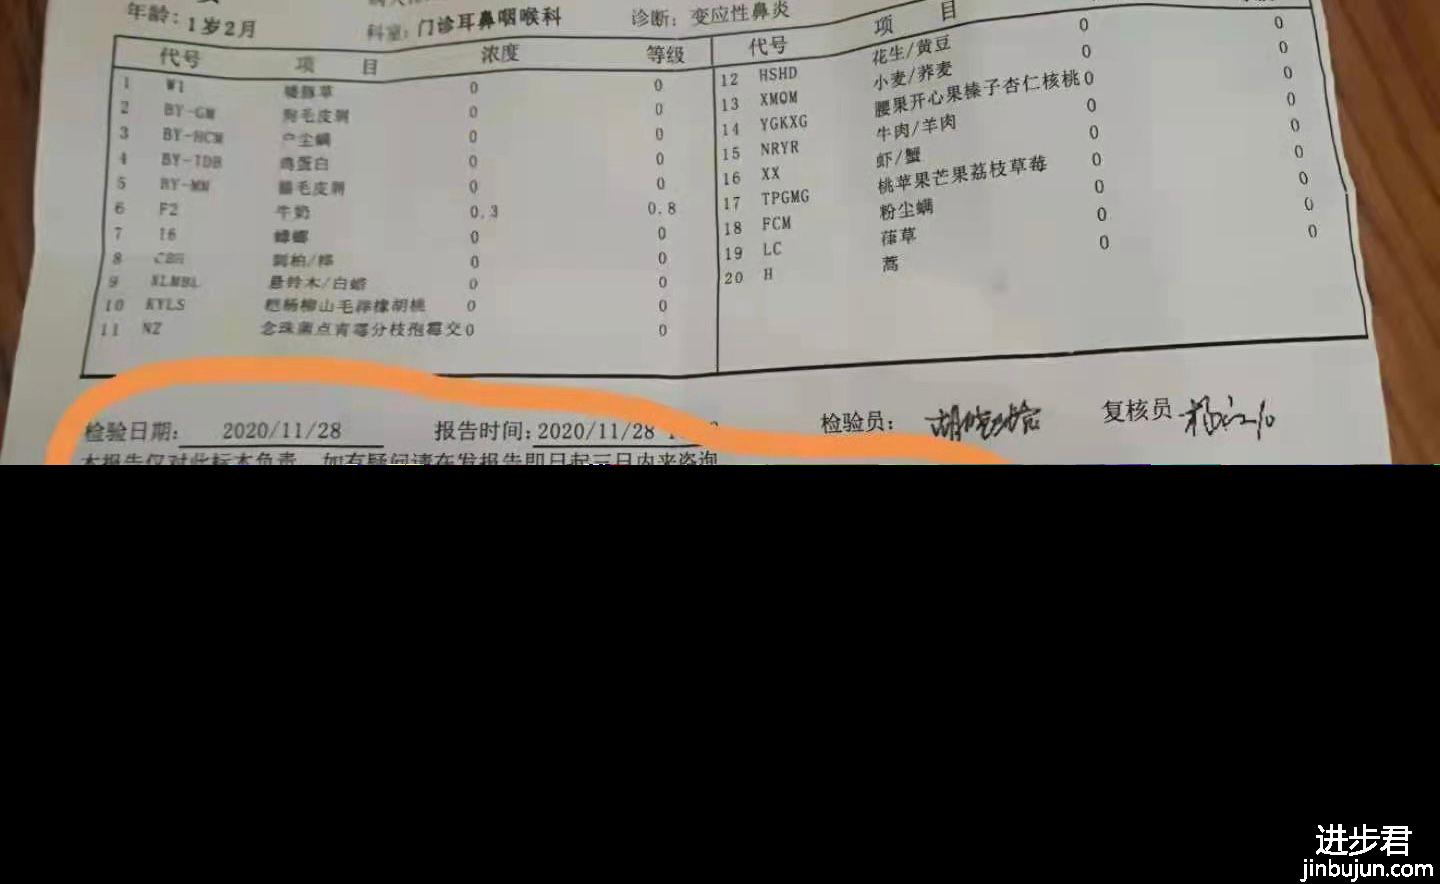 年龄：1岁2月 科室：门诊耳鼻咽喉科 诊断：变应性鼻炎
代号 项 目 浓度 等级
1 W1 矮豚草 0 0
2 BY-GM 狗毛皮屑 0 0
3 BY-HCM 户尘螨 0 0
4 BY-TDB 鸡蛋白 0 0
5 BY-MM 猫毛皮屑 0 0
6 F2 牛奶 0.3 0.8
7 I6 蟑螂 0 0
8 0 0
9 XLMBL 悬铃木/白蜡 0 0
10 KYLS 杨柳山毛榉橡胡桃 0 0
11 NZ 念珠菌点青霉分枝孢霉交 0 0
代号 项 目
12 HSHD 花生/黄豆 0 0
13 XMQM 小麦/荞麦 0 0
14 YGKXG 腰果开心果榛子杏仁核桃 0 0
15 NRYR 牛肉/羊肉 0 0
16 XX 虾/蟹 0 0
17 TPGMG 桃苹果芒果荔枝草莓 0 0
18 FCM 粉尘螨 0 0
19 LC 葎草 0 0
20 H 蒿 0 0
检验日期： 2020/11/28 报告时间：2020/11/28 检验员： 复核员
本报告仅对此标本负责，如有疑问请在发报告即日起三日内来咨询
进步君
jinbujun.com